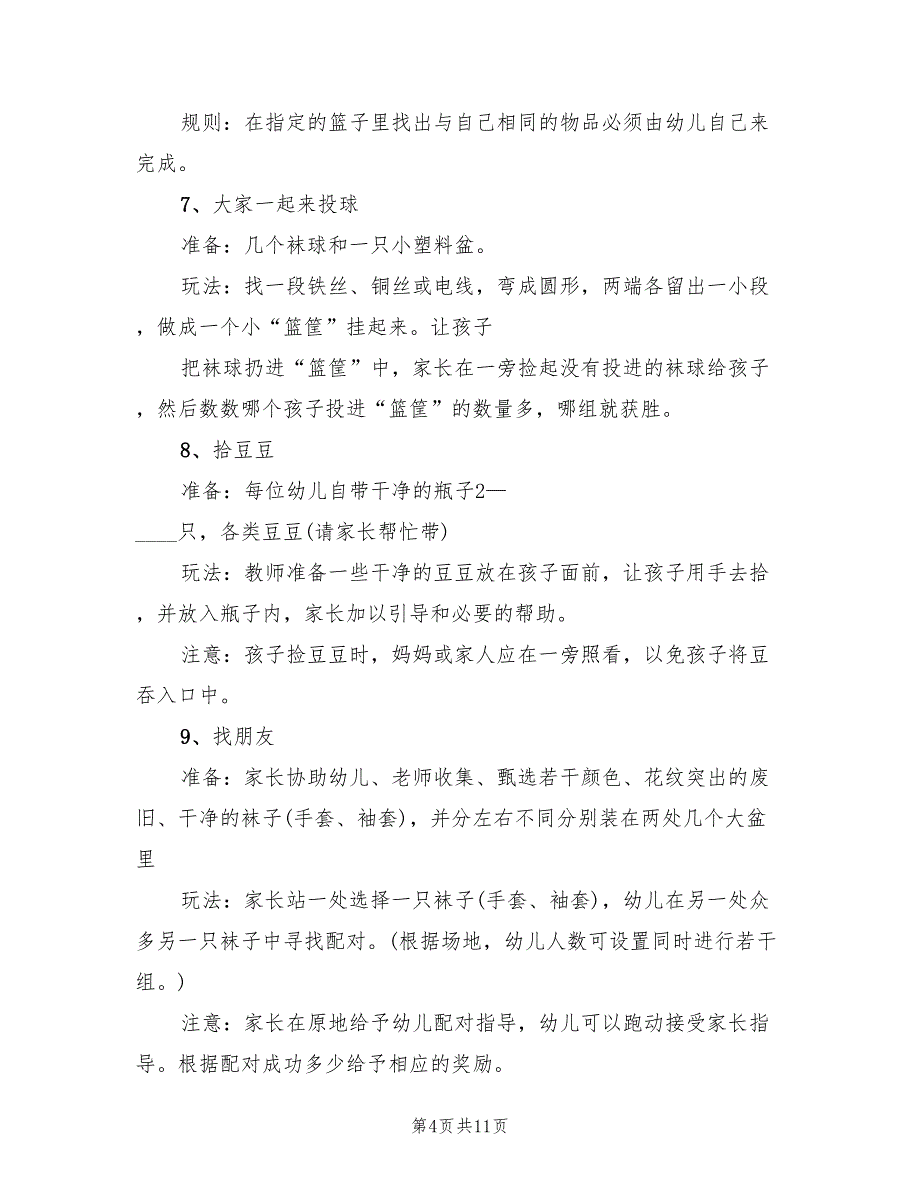 规则：在指定的篮子里找出与自己相同的物品必须由幼儿自己来
完成。
7、大家一起来投球
准备：几个袜球和一只小塑料盆。
玩法：找一段铁丝、铜丝或电线，弯成圆形，两端各留出一小段
，做成一个小“篮筐”挂起来。让孩子
把袜球扔进“篮筐”中，家长在一旁捡起没有投进的袜球给孩子
，然后数数哪个孩子投进“篮筐”的数量多，哪组就获胜。
8、拾豆豆
准备：每位幼儿自带干净的瓶子2—
____只，各类豆豆(请家长帮忙带)
玩法：教师准备一些干净的豆豆放在孩子面前，让孩子用手去拾
，并放入瓶子内，家长加以引导和必要的帮助。
注意：孩子捡豆豆时，妈妈或家人应在一旁照看，以免孩子将豆
吞入口中。
9、找朋友
准备：家长协助幼儿、老师收集、甄选若干颜色、花纹突出的废
旧、干净的袜子(手套、袖套)，并分左右不同分别装在两处几个大盆
里
玩法：家长站一处选择一只袜子(手套、袖套)，幼儿在另一处众
多另一只袜子中寻找配对。(根据场地，幼儿人数可设置同时进行若干
组。)
注意：家长在原地给予幼儿配对指导，幼儿可以跑动接受家长指
导。根据配对成功多少给予相应的奖励。
第4页共11页